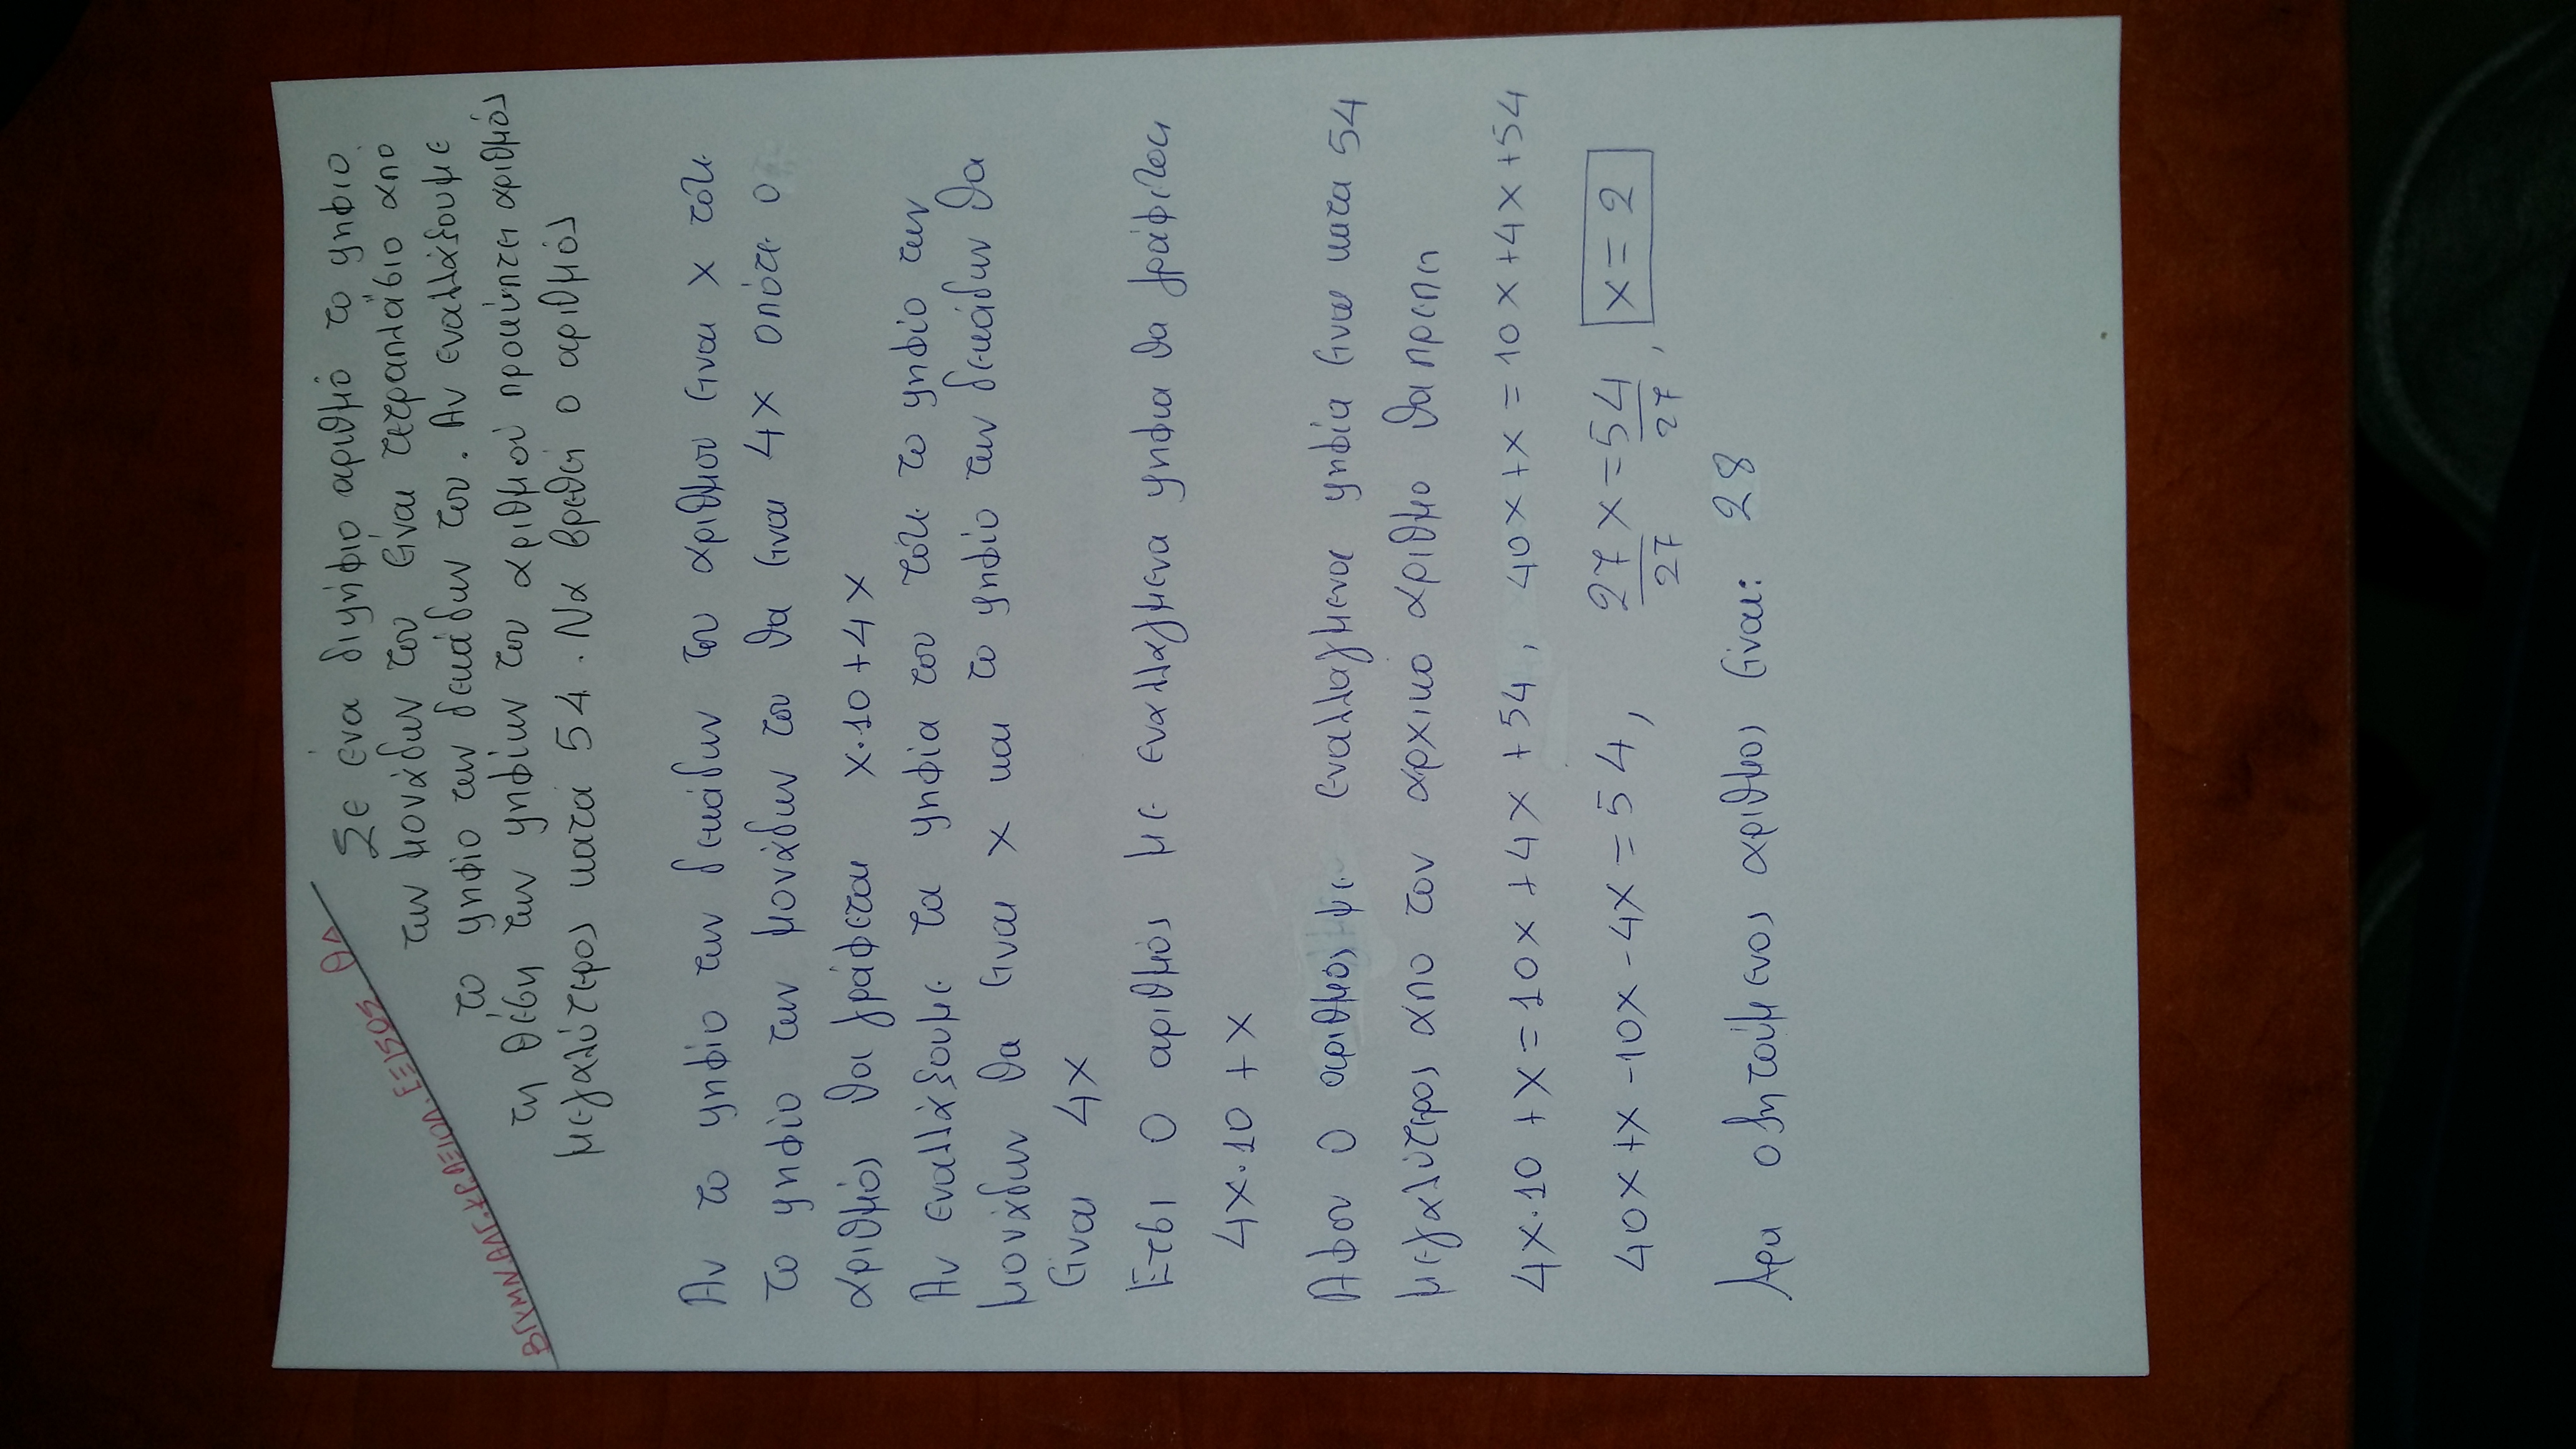 ΒΓΥΜΝ.ΑΛΓ.ΧΡ.ΑΕΙΟΛ. ΕΞΙΣΩΣ. θΔ
Σε ένα διψήφιο αριθμό το ψηφιο
των μονάδων του είναι τετραπλάσιο απο
το ψηφιο των δεκάδων του. Αν εναλλάξουμε
τη θέση των ψηφίων του αριθμού προκύπτει αριθμός
μεγαλύτερος κατά 54. Να βρεθεί ο αριθμός
Αν το ψηφίο των δεκάδων του αριθμου ειναι x τότε
το ψηφίο των μονάδων του θα ειναι 4x οπότε ο
αριθμός θα γράφεται x·10+4x
Αν εναλλάξουμε τα ψηφία του τότε το ψηφίο των
μονάδων θα ειναι x και το ψηφίο των δεκάδων θα
είναι 4x
Ετσι ο αριθμός με εναλλαγμενα ψηφια θα γράφεται
4x·10+x
Αφου ο αριθμός με εναλλαγμενα ψηφία ειναι κατα 54
μεγαλύτερος απο τον αρχικο αριθμο θα πρεπει
4x·10+x=10x+4x+54, 40x+x=10x+4x+54
40x+x-10x-4x=54, 27x/27=54/27, x=2
Άρα ο ζητούμενος αριθμος είναι: 28